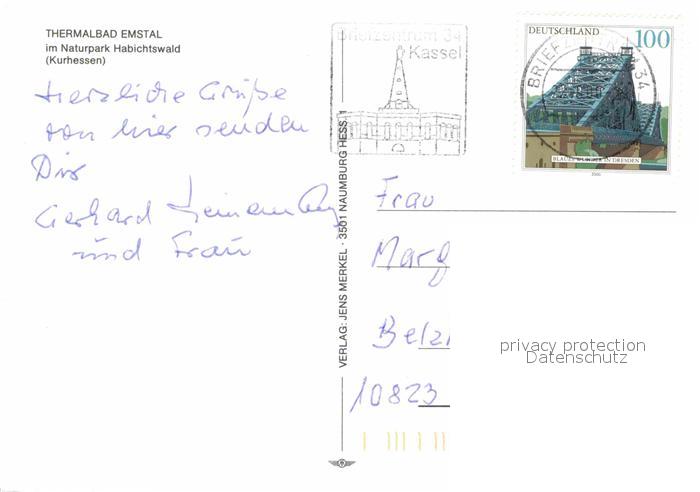 THERMALBAD EMSTAL
im Naturpark Habichtswald
(Kurhessen)
Herzliche Grüße
von hier senden
Dir
Gerhard
und Frau
VERLAG: JENS MERKEL · 3501 NAUMBURG HESS. 1
Briefzentrum 34
Kassel
DEUTSCHLAND
100
BLAUES WUNDER IN DRESDEN
2000
34
Frau
Marg
Belzi
10823
privacy protection
Datenschutz